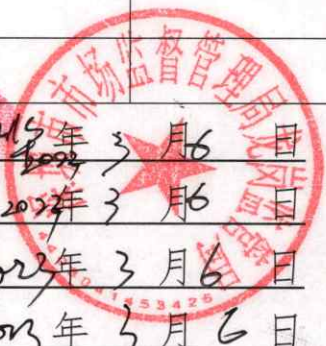 市场监督管理局龙岗
2023年 3 月 6 日
2023年 3 月 6 日
023年 3 月 6 日
023年 3 月 6 日